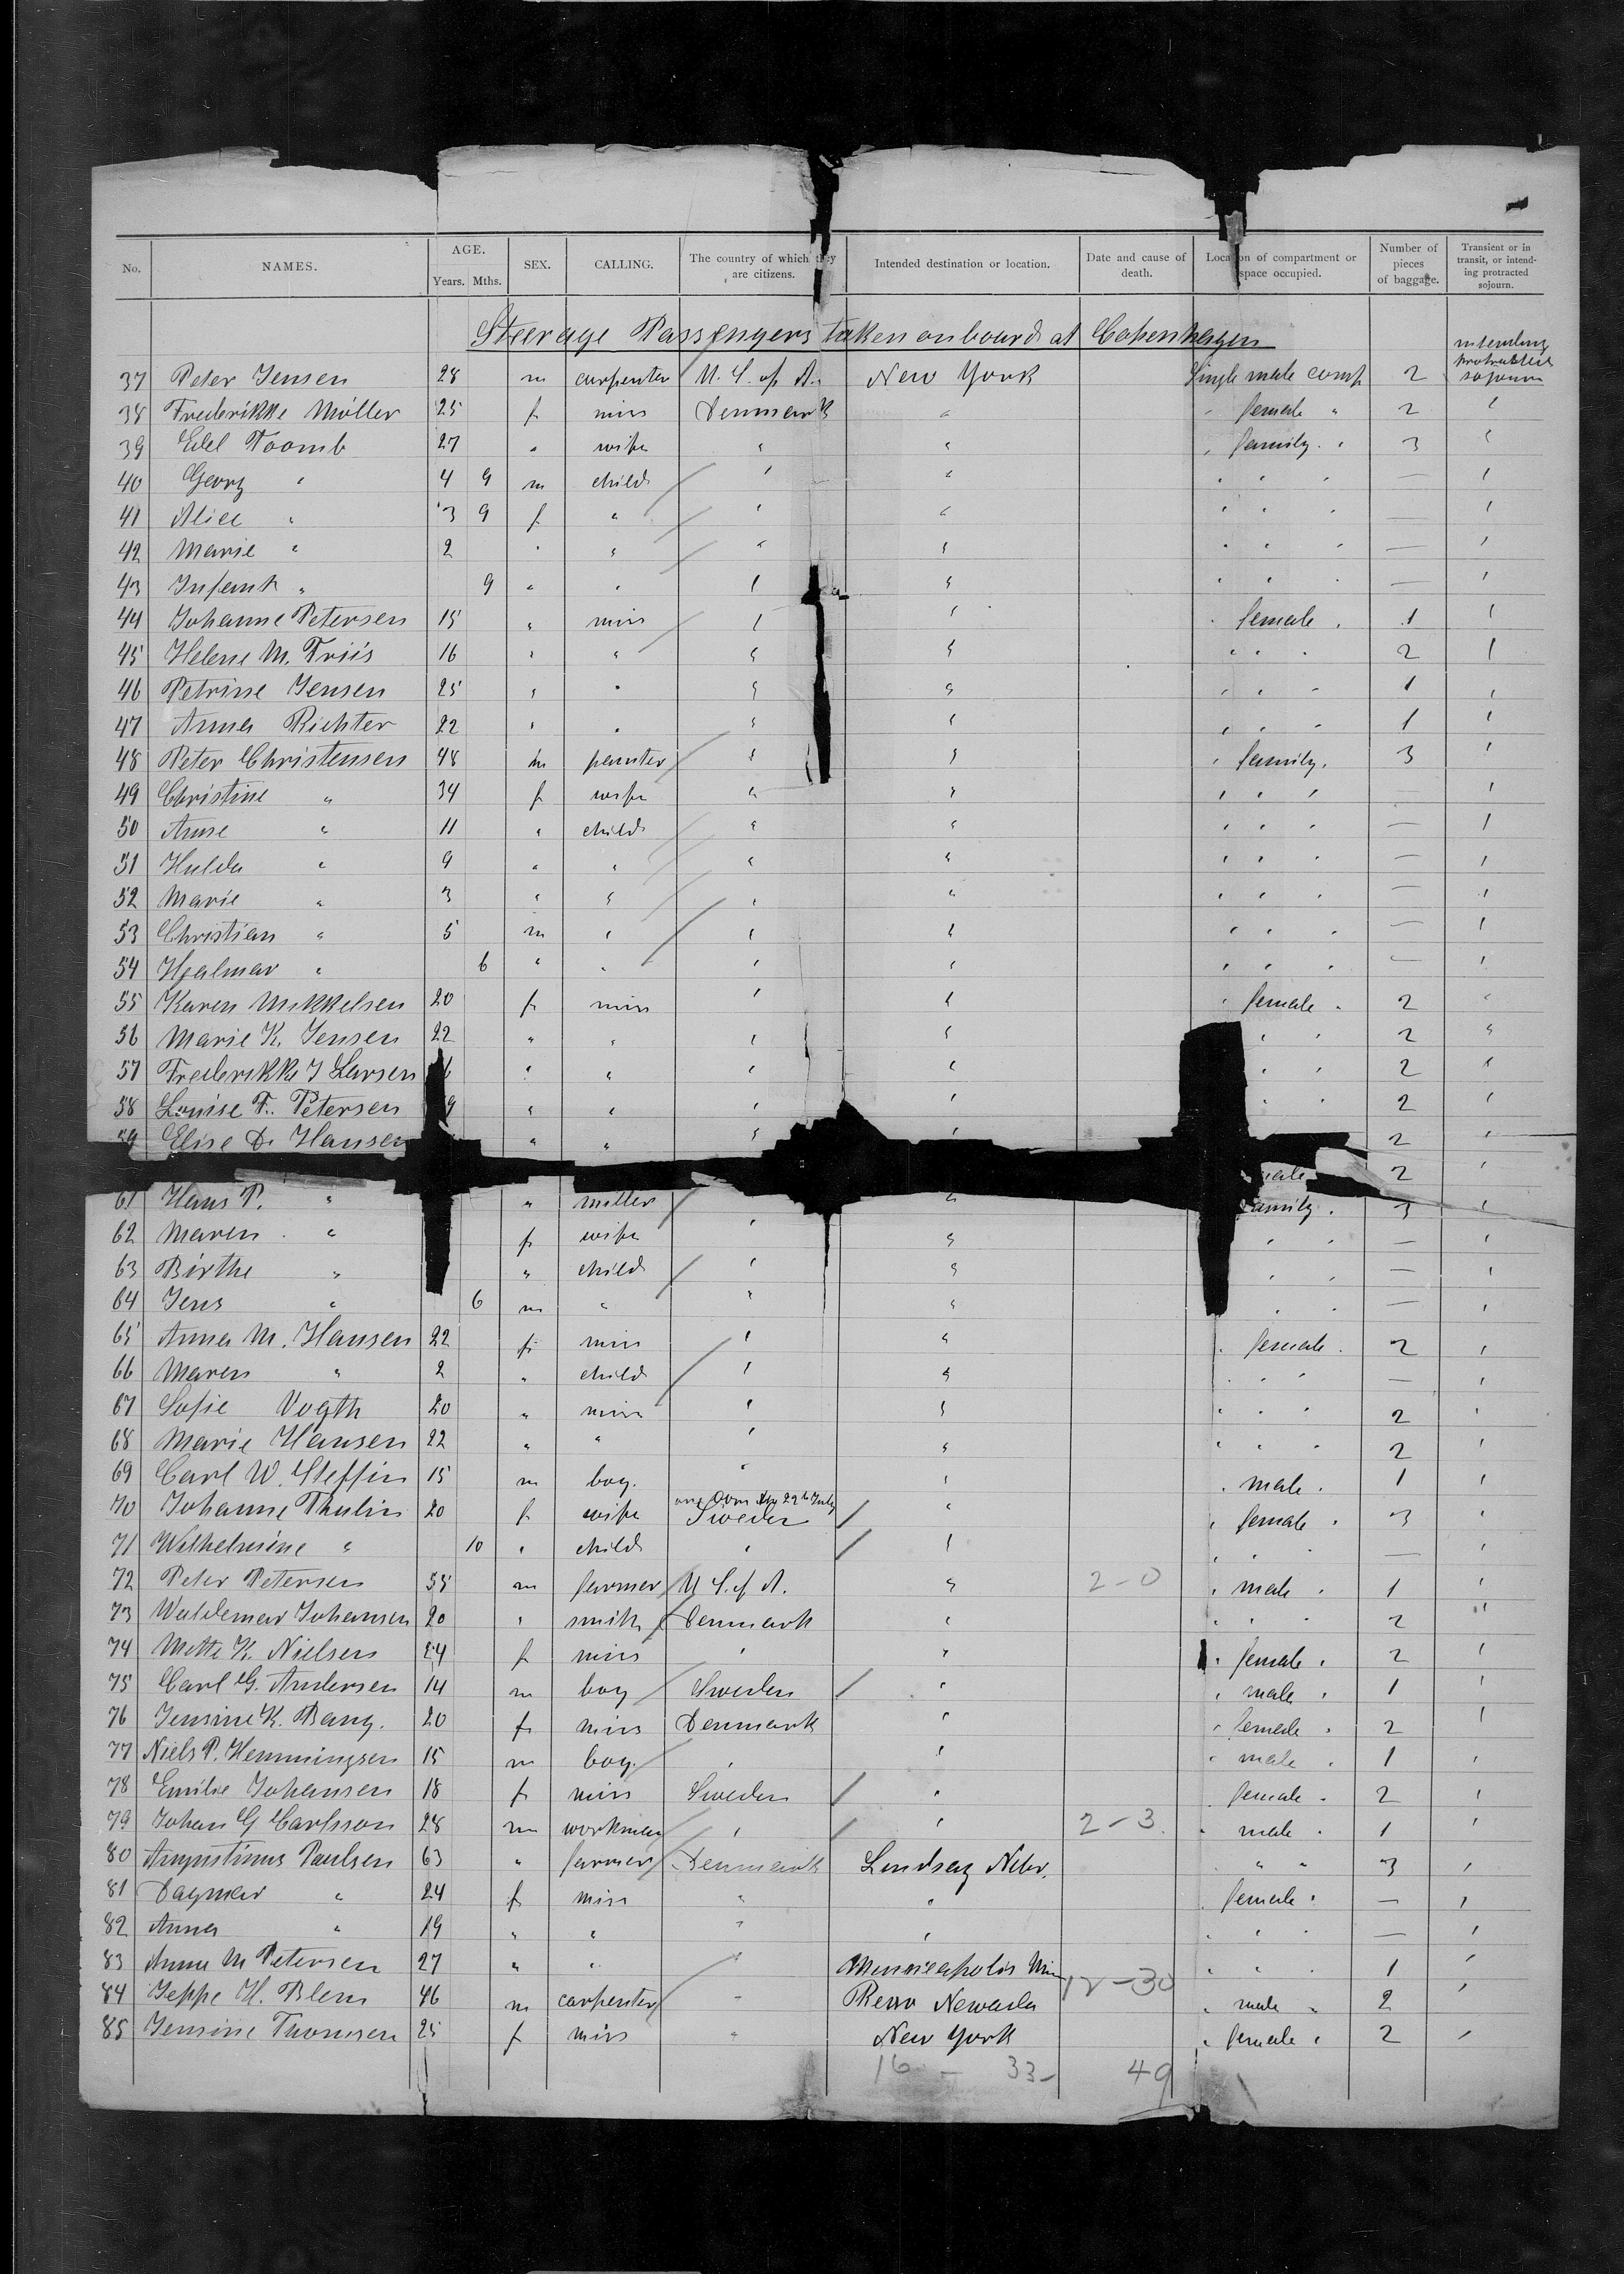 No. NAMES. AGE. Years. Mths. SEX. CALLING. The country of which they are citizens. Intended destination or location. Date and cause of death. Location of compartment or space occupied. Number of pieces of baggage. Transient or in transit, or intending protracted sojourn.
Steerage Passengers taken on board at Copenhagen
37 Peter Jensen 28 m carpenter U. S. of A. New York Single male comp 2 intending protracted sojourn
38 Frederikke Möller 25 f miss Denmark " " female " 2 "
39 Edel Toomb 27 " wife " " " family " 3 "
40 Georg " 4 9 m child " " " " " — "
41 Alice " 3 9 f " " " " " " — "
42 Marie " 2 " " " " " " " — "
43 Infant " 9 " " " " " " " — "
44 Johanne Petersen 15 " miss " " " female " 1 "
45 Helene M. Friis 16 " " " " " " " 2 "
46 Petrine Jensen 25 " " " " " " " 1 "
47 Anna Richter 22 " " " " " " " 1 "
48 Peter Christensen 48 m painter " " " family " 3 "
49 Christine " 34 f wife " " " " " — "
50 Anne " 11 " child " " " " " — "
51 Hulda " 9 " " " " " " " — "
52 Marie " 3 " " " " " " " — "
53 Christian " 5 m " " " " " " — "
54 Hjalmar " 6 " " " " " " " — "
55 Karen Mikkelsen 20 f miss " " " female " 2 "
56 Marie K. Jensen 22 " " " " " " 2 "
57 Frederikke J Larsen 6 " " " " " " 2 "
58 Louise F. Petersen 9 " " " " " " 2 "
59 Elise D. Hansen " " " " 2 "
male 2 "
61 Hans P. " " miller " family " 3 "
62 Maren " f wife " " " " — "
63 Birthe " " child " " " " — "
64 Jens " 6 m " " " " " — "
65 Anna M. Hansen 22 f miss " " " female " 2 "
66 Maren " 2 " child " " " " " — "
67 Sofie Vogth 20 " miss " " " " " 2 "
68 Marie Hansen 22 " " " " " " " 2 "
69 Carl W. Steffin 15 m boy. " " " male " 1 "
70 Johanne Thulin 20 f wife 22 July Sweden " " female " 3 "
71 Wilhelmine " 10 " child " " " " " — "
72 Peter Petersen 55 m farmer U S. of A. " 2-0 " male " 1 "
73 Waldemar Johansen 20 " smith Denmark " " " " 2 "
74 Mette K. Nielsen 24 f miss " " " female " 2 "
75 Carl G. Andersen 14 m boy Sweden " " male " 1 "
76 Jensine K. Bang. 20 f miss Denmark " " female " 2 "
77 Niels P. Hemmingsen 15 m boy. " " " male " 1 "
78 Emilie Johansen 18 f miss Sweden " " female " 2 "
79 Johan G Carlsson 28 m workman " " 2-3 " male " 1 "
80 Augustinus Paulsen 63 " farmer Denmark Lindsay Nebr. " " " 3 "
81 Dagmar " 24 f miss " " " female " — "
82 Anna " 19 " " " " " " " — "
83 Anna M Petersen 27 " " " Minneapolis Min " " " 1 "
84 Jeppe H. Blem 46 m carpenter " Reno Newada 12-30 " male " 2 "
85 Jensine Thomsen 25 f miss " New York " female " 2 "
16 - 33 - 49